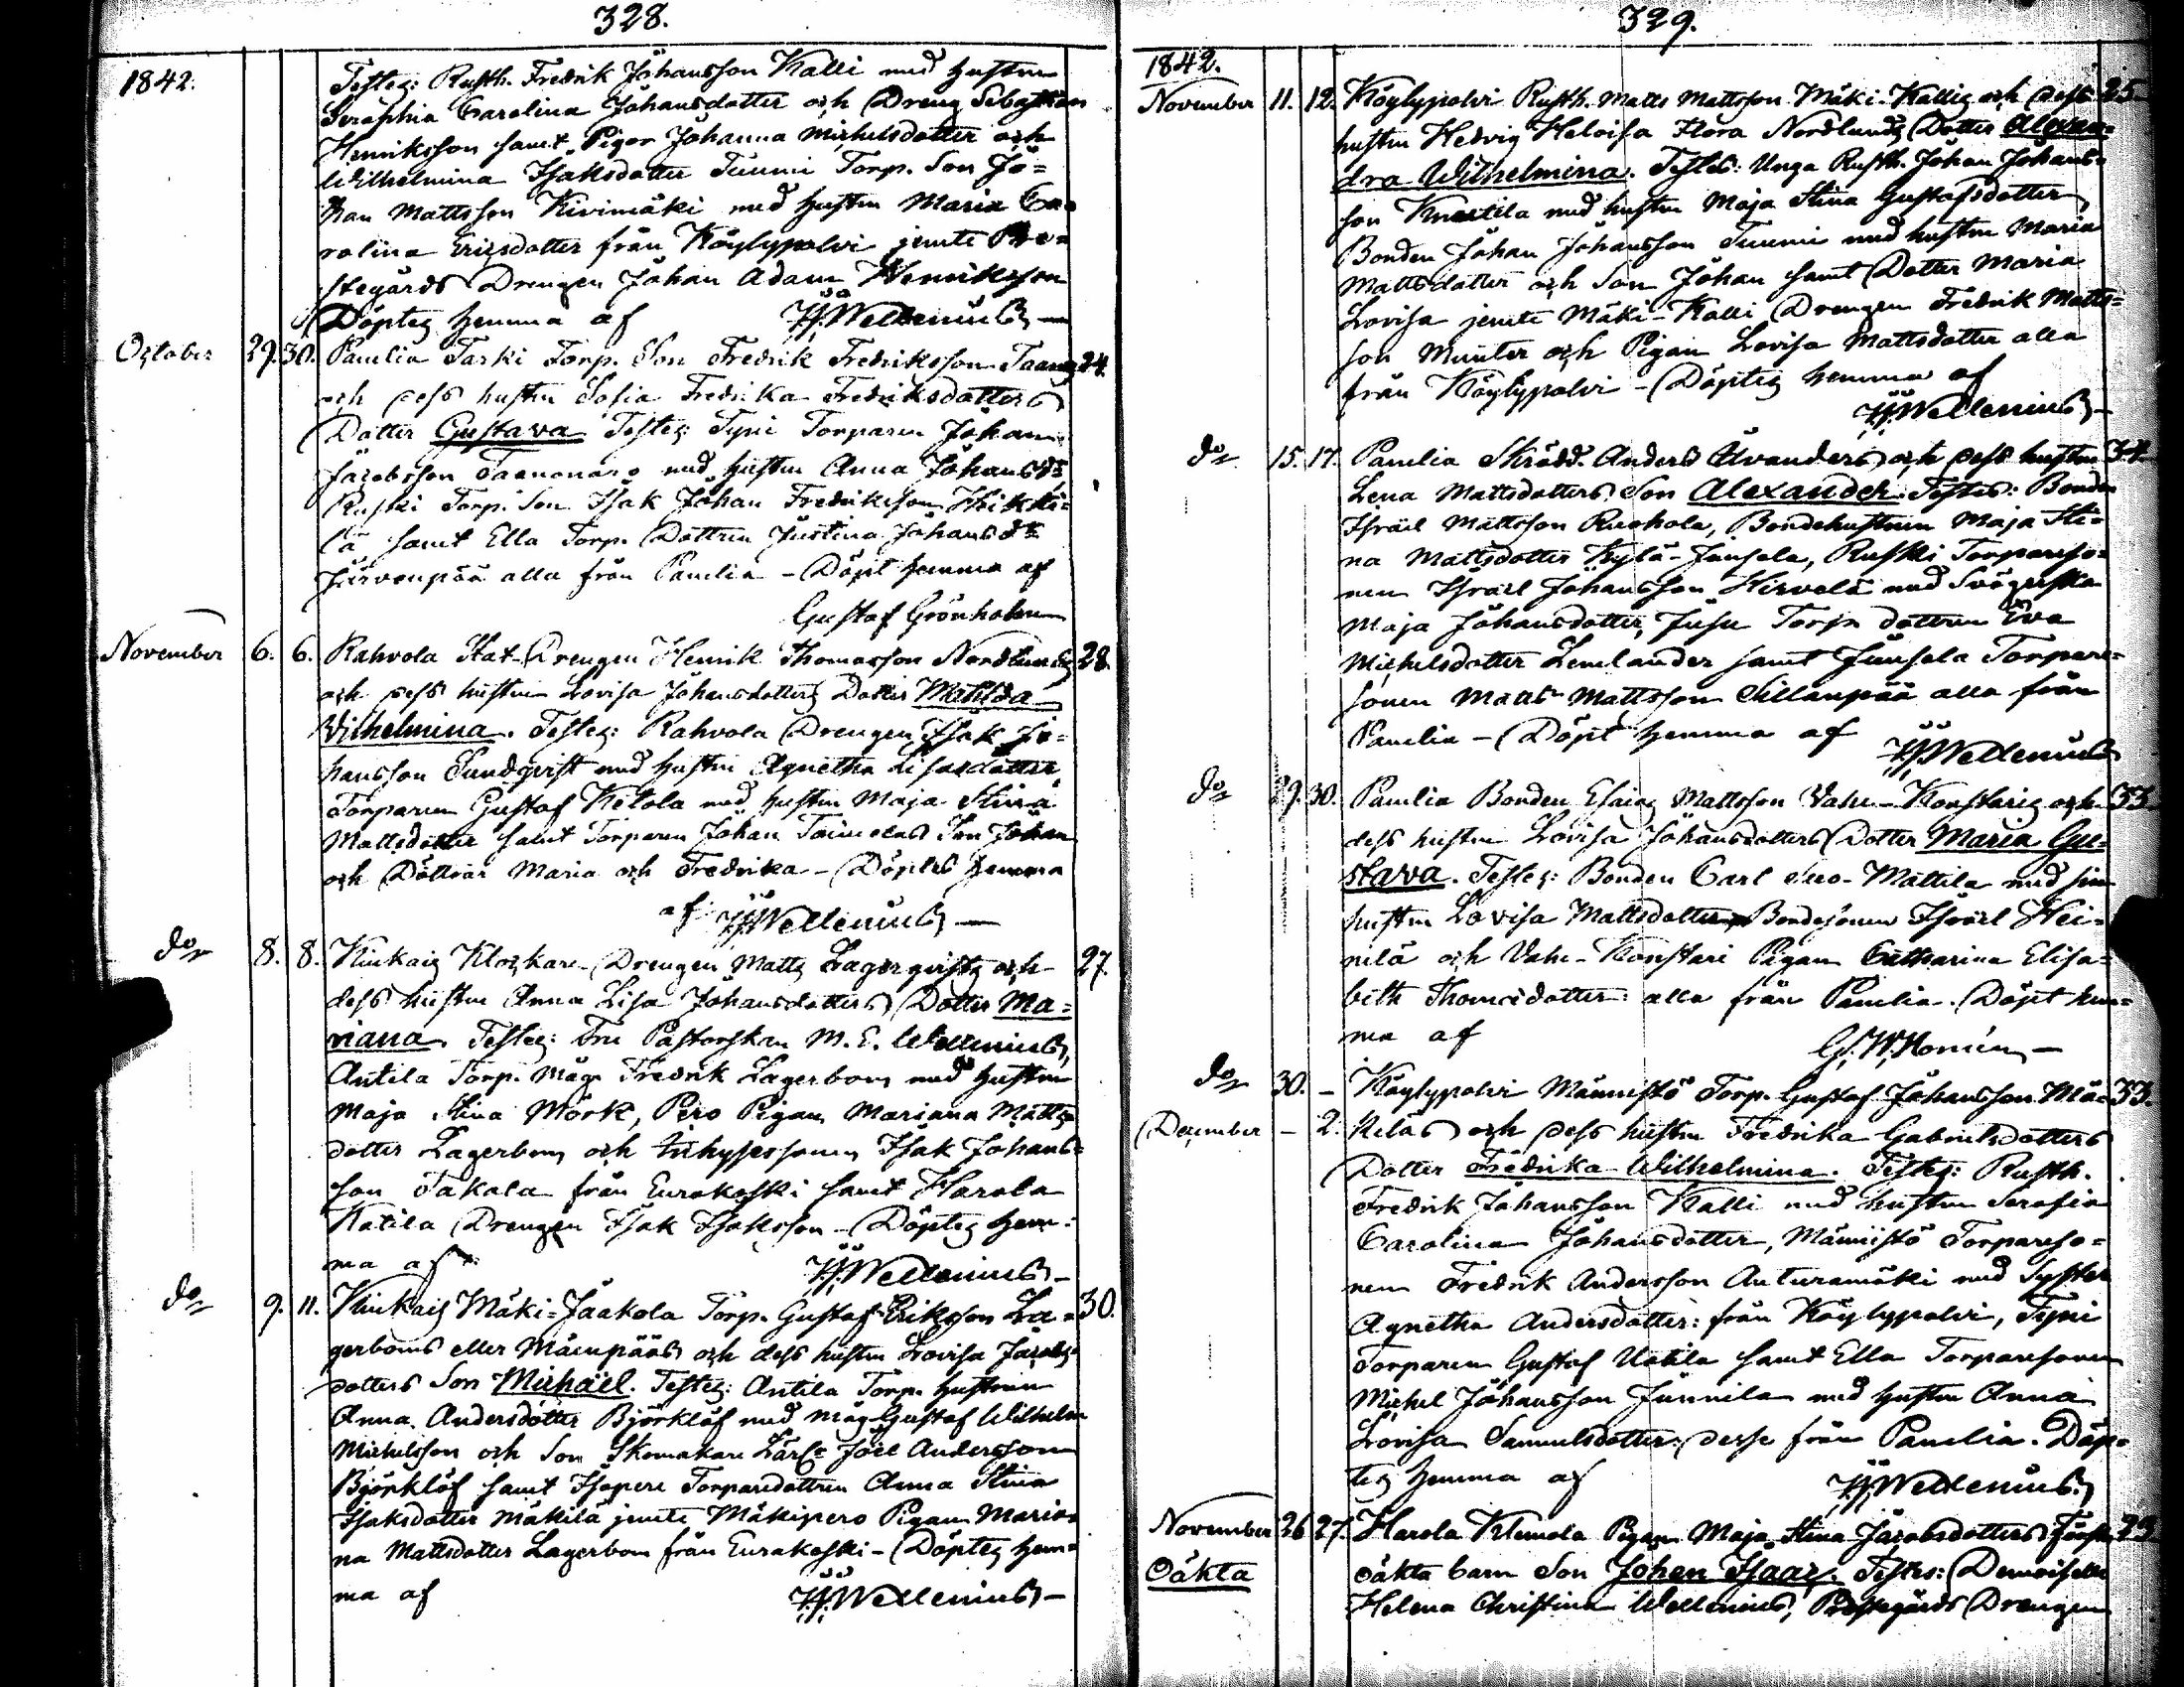 328.
1842.
Testes: Rusth. Fredrik Johansson Kalli med hustru
Seraphia Carolina Johansdotter och Dreng Sebastian
Henriksson samt Pigor Johanna Michelsdotter och
Wilhelmina Isaksdotter Tuumi Torp. Son Jo=
han Mattsson Kivimäki med hustru Maria Ca=
rolina Ericsdotter från Köylypolvi jemte Pre=
stegårds Drengen Johan Adam Henriksson
Döptes hemma af Wellenius
October 29. 30. Panelia Taski Torp. Son Fredrik Fredriksson 24.
och dess hustru Sofia Fredrika Fredriksdotters
Dotter Gustava Testes: Tyni Torparen Johan
Jacobsson med hustru Anna Johansdr
Ruski Torp. Son Isak Johan Fredriksson Heikki=
lä samt Ella Torp. Dottren Justina Johansdr
Järvenpää alla från Panelia - Döpt hemma af
Gustaf Grönholm
November 6. 6. Rahvola Stat-Drengen Henrik Thomasson Nordlunds 28.
och dess hustru Lovisa Johansdotters Dotter Matilda
Vilhelmina. Testes: Rahvola Drengen Isak Jo=
hansson Sundqvist med hustru Agnetha Lisasdotter,
Torparen Gustaf Ketola med hustru Maja Stina
Mattsdotter samt Torparen Johan Toivolas Son Johan
och Döttrar Maria och Fredrika - Döptes hemma
af Wellenius
do 8. 8. Kiukais Klockare-Drengen Matts Lagerqvists och 27.
dess hustru Anna Lisa Johansdotters Dotter Ma=
riana. Testes: Fru Pastorskan M. E. Wellenius,
Antila Torp. Måg Fredrik Lagerbom med hustru
Maja Stina Mörk, Pero Pigan Mariana Matts=
dotter Lagerbom och Inhysessonen Isak Johans=
son Takala från Eurakoski samt Harola
Katila Drengen Isak Isaksson - Döptes hem=
ma af Wellenius
do 9. 11. Kiukais Mäki-Jaakola Torp. Gustaf Eriksson La= 30.
gerboms eller Mäenpääs och dess hustru Lovisa Jacobs=
dotters Son Michaël. Testes: Antila Torp. hustrun
Anna Andersdotter Björklöf med måg Gustaf Wilhelm
Michelsson och Son Skomakare Lärl. Joel Andersson
Björklöf samt Isopere Torparedottren Anna Stina
Isaksdotter Mäkilä jemte Mäkipero Pigan Maria=
na Mattsdotter Lagerbom från Eurakoski - Döptes hem=
ma af Wellenius
329.
1842.
November 11. 12. Köylypolvi Rusth. Matts Mattsson Mäki-Kallis och dess 25.
hustru Hedvig Heloisa Flora Nordlunds Dotter Alexan=
dra Wilhelmina. Testes: Unga Rusth. Johan Johans=
son Knaatila med hustru Maja Stina Gustafsdotter,
Bonden Johan Johansson Tuumi med hustru Maria
Mattsdotter och Son Johan samt Dotter Maria
Lovisa jemte Mäki-Kalli Drengen Fredrik Matts=
son Munter och Pigan Lovisa Mattsdotter alla
från Köylypolvi - Döptes hemma af
Wellenius
do 15. 17. Panelia Skrädd. Anders Alvanders och dess hustru 34.
Lena Mattsdotters Son Alexander. Testes: Bonden
Israel Mattsson Ruohola, Bondehustrun Maja Sti=
na Mattsdotter Kylä-Junsela, Ruski Torpareso=
nen Israel Johansson Hirvelä med Svägerska
Maja Johansdotter, Jusu Torp. dottren Eva
Michelsdotter Lemlander samt Junsela Torpare=
sonen Matts Mattsson Sillanpää alla från
Panelia - Döpt hemma af Wellenius
do 29. 30. Panelia Bonden Esaias Mattsson Vahe-Konstaris och 33.
dess hustru Lovisa Johansdotters Dotter Maria Gu=
stava. Testes: Bonden Carl Suo-Mattila med sin
hustru Lovisa Mattsdotter, Bondesonen Israel Hei=
nilä och Vahe-Konstari Pigan Catharina Elisa=
beth Thomasdotter: alla från Panelia. Döpt hem=
ma af
G. W. Homén
do 30. - Köylypolvi Männistö Torp. Gustaf Johansson Mä= 33.
December - 2. kiläs och dess hustru Fredrika Gabrielsdotters
Dotter Fredrika Wilhelmina. Testes: Rusth.
Fredrik Johansson Kalli med hustru Serafia
Carolina Johansdotter, Männistö Torpareso=
nen Fredrik Andersson Anturamäki med Syster
Agnetha Andersdotter: från Köylypolvi, Tyni
Torparen Gustaf Uotila samt Ella Torparesonen
Michel Johansson Junnila med hustru Anna
Lovisa Samuelsdotter: desse från Panelia. Döp=
tes hemma af Wellenius
November 26 27. Harola Klemola Pigan Maja Stina Jacobsdotters första 29
Oäkta oäkta barn Son Johan Isaac. Testes: Demoiselle
Helena Christina Wellenius, Prestegårds Drengen